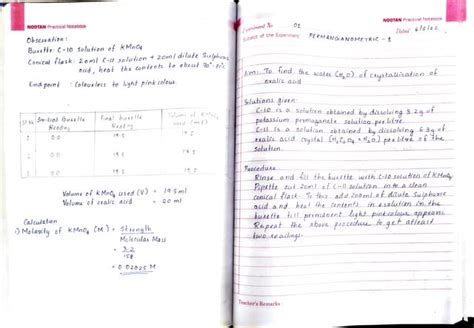 NOOTAN Practical Notebook
Observation:
Burette: C-10 solution of KMnO4
Conical flask: 20ml C-11 solution + 20ml dilute Sulphuric
acid, heat the contents to about
End point: Colourless to light pink colour.
Sl No Initial Burette Reading Final burette Reading Volume of KMnO4 used (ml)
1 0.0 19.5 19.5
2 0.0 19.5 19.5
3 0.0 19.5 19.5
Volume of KMnO4 used (V) = 19.5ml
Volume of oxalic acid = 20 ml
Calculation
i) Molarity of KMnO4 (M) = Strength
Molecular Mass
= 3.2
158
= 0.02025 M
NOOTAN Practical Notebook
Experiment No. 01 Dated
Subject of the Experiment PERMANGANOMETRIC - 1
Aim: To find the water (H2O) of crystallisation of
oxalic acid
Solutions given:
C-10 is a solution obtained by dissolving 3.2g of
potassium permanganate solution per litre.
C-11 is a solution obtained by dissolving 6.3g of
oxalic acid crystal of the
solution.
Procedure
Rinse and fill the burette with C-10 solution of KMnO4
Pipette out 20ml of C-11 solution into a clean
conical flask. To this add 20ml of dilute sulphuric
acid and heat the contents solution in the
burette till permanent light pink colour appears
Repeat the above procedure to get atleast
two readings.
Teacher's Remarks: